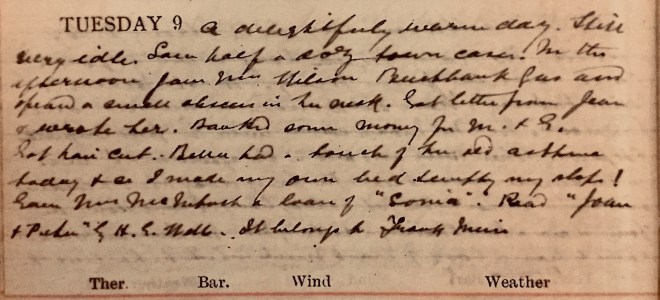 TUESDAY 9 A delightfully warm day. Still
very idle. Saw half a doz town cases. In the
afternoon gave Mrs Wilson Buckbank gas and
opened a small abscess in her neck. Got letter from Jean
& wrote her. Banked some money for M. & G.
Got hair cut. Bella had a touch of her old asthma
today & so I made my own bed & empty my slops!
Gave Mrs McIntosh a loan of "Sonia". Read "Joan
& Peter" by H. G. Wells. It belongs to Frank Muir
Ther. Bar. Wind Weather